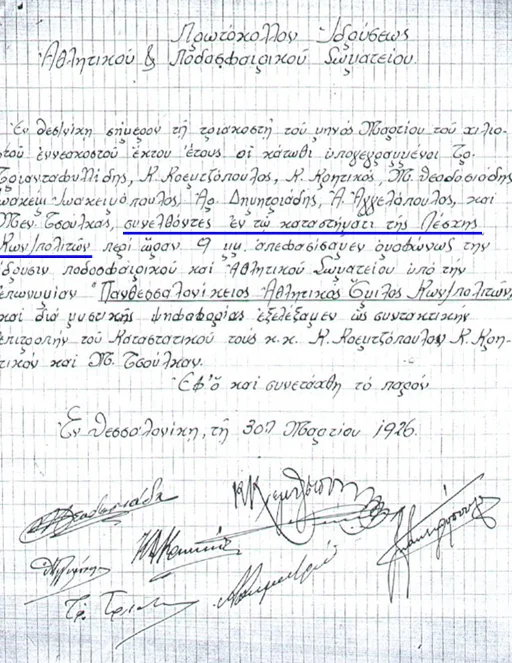 Πρωτόκολλον Ιδρύσεως
Αθλητικού & Ποδοσφαιρικού Σωματείου.
Εν Θεσ/νίκη σήμερον τη τριακοστή του μηνός Μαρτίου του χιλιο-
στού εννεακοστού έκτου έτους οι κάτωθι υπογεγραμμένοι Τρ.
Τριανταφυλλίδης, Κ. Κοεμτζόπουλος, Κ. Κρητικός, Μ. Θεοδοσιάδης
Ιωακείμ Ιωακειμόπουλος, Αρ. Δημητριάδης, Α. Αγγελόπουλος, και
Μεν. Τσούλκας, συνελθόντες εν τω καταστήματι της Λέσχης
Κων/πολιτών περί ώραν 9 μμ. απεφασίσαμεν ομοφώνως την
ίδρυσιν ποδοσφαιρικού και Αθλητικού Σωματείου υπό την
επωνυμίαν "Πανθεσσαλονίκειος Αθλητικός Όμιλος Κων/πολιτών,
και διά μυστικής ψηφοφορίας εξελέξαμεν ως συντακτικήν
επιτροπήν του Καταστατικού τους κ.κ. Κ. Κοεμτζόπουλον Κ. Κρη-
τικόν και Μ. Τσούλκαν.
Εφ' ό και συνετάχθη το παρόν
Εν Θεσσαλονίκη, τη 30η Μαρτίου 1926.